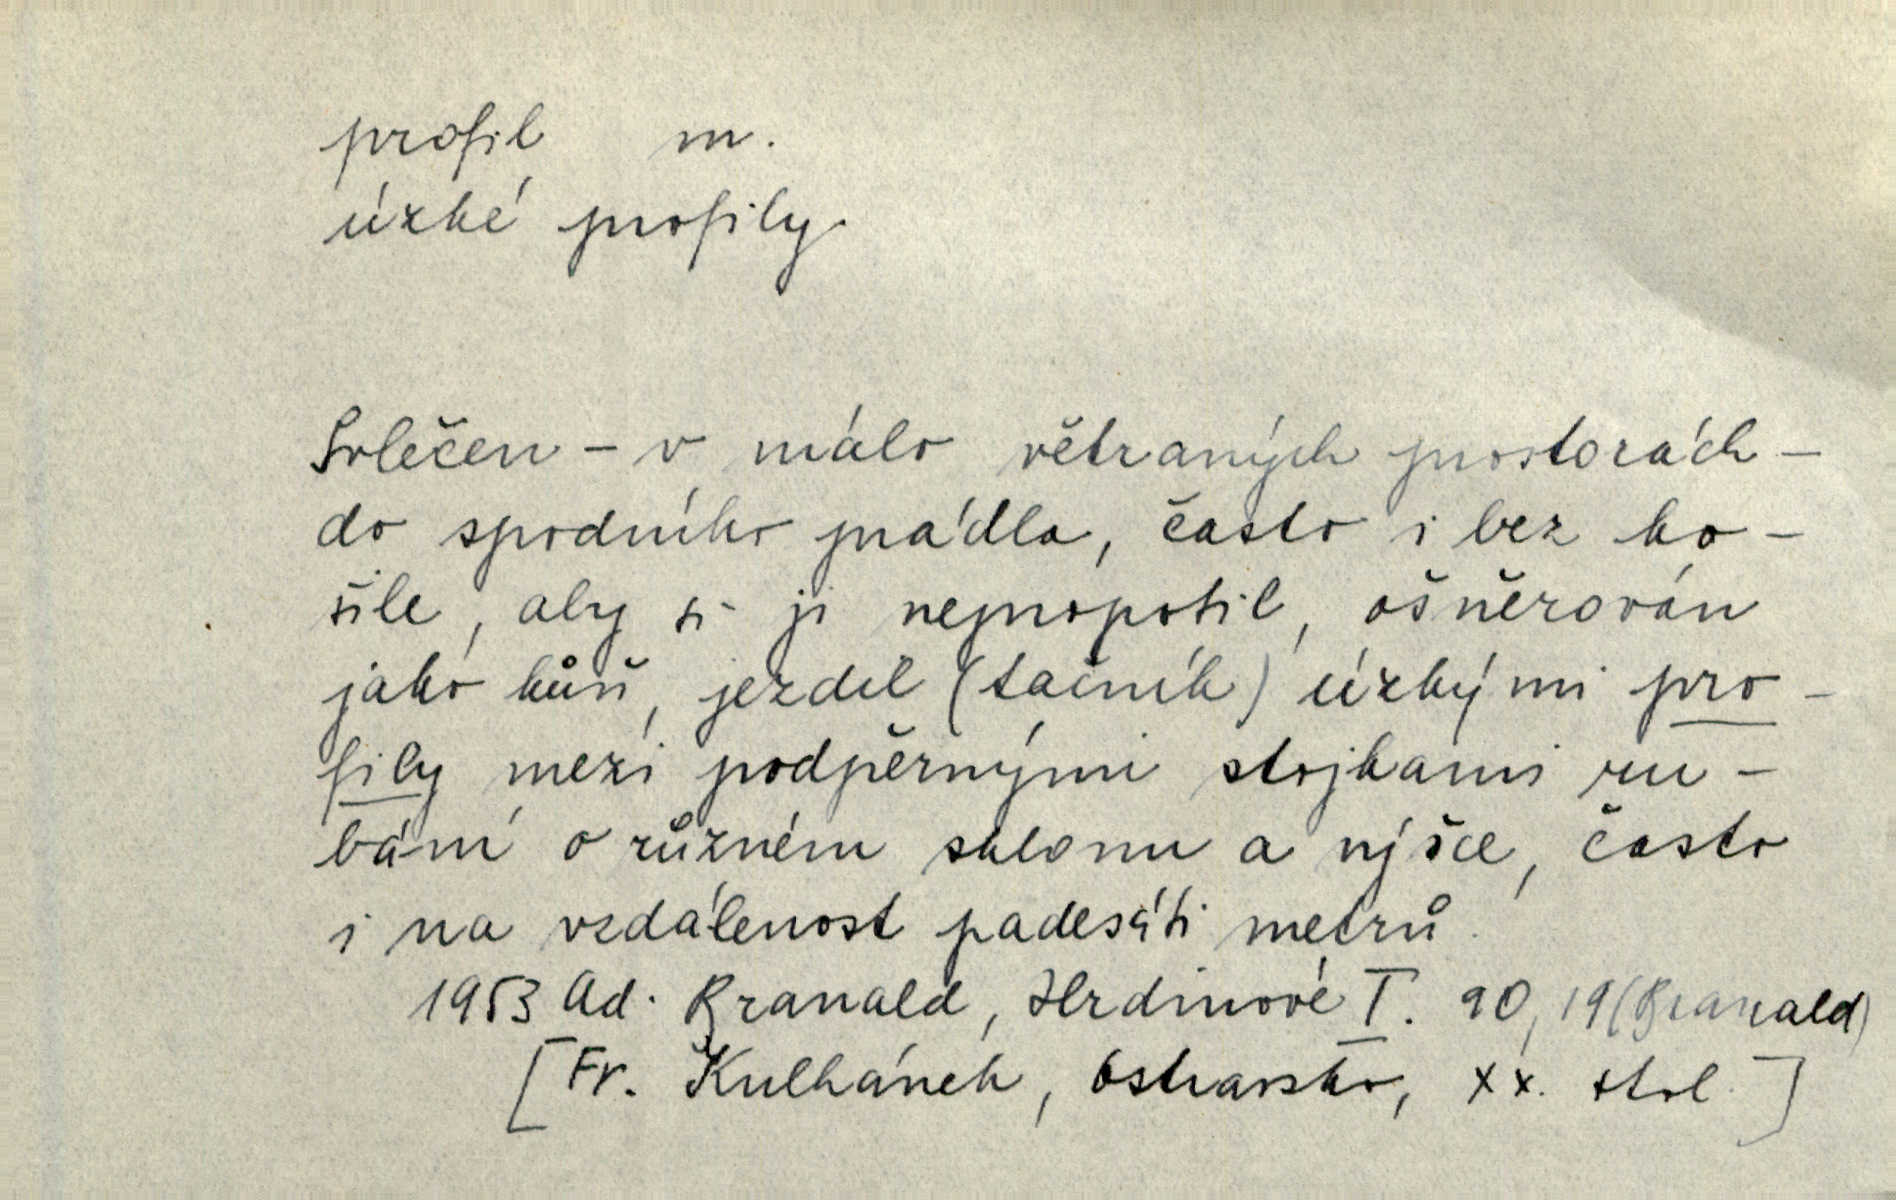 profil m.
úzké profily
Svlečen – v málo větraných prostorách –
do spodního prádla, často i bez ko-
šile, aby si ji nepropotil, ošněrován
jako kůň, jezdil (tačník) úzkými pro-
fily mezi podpěrnými stojkami ru-
bání o různém sklonu a výšce, často
i na vzdálenost padesáti metrů.
1953 Ad. Branald, Hrdinové T. 90, 19 (Branald)
[Fr. Kulhánek, Ostravsko, XX. stol.]